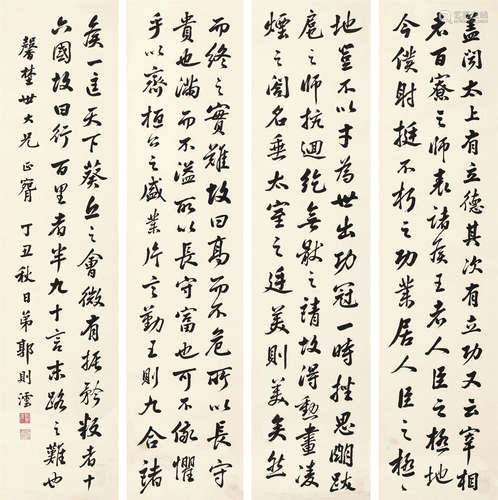 蓋闻太上有立德其次有立功又云宰相
者百寮之師表諸侯王者人臣之極地
今僕射挺不朽之功業居人臣之極
地豈不以才為世出功冠一時挫思明跋
扈之師抗迴紇無猒之請故得勳畫凌
煙之閣名垂太室之廷美則美矣然
而終之實難故曰高而不危所以長守
貴也滿而不溢所以長守富也可不儆懼
乎以齊桓公之盛業片言勤王則九合諸
侯一匡天下葵丘之會微有振矜叛者十
六國故曰行百里者半九十言末路之難也
馨埜世大兄正 丁丑秋日弟郭則澐